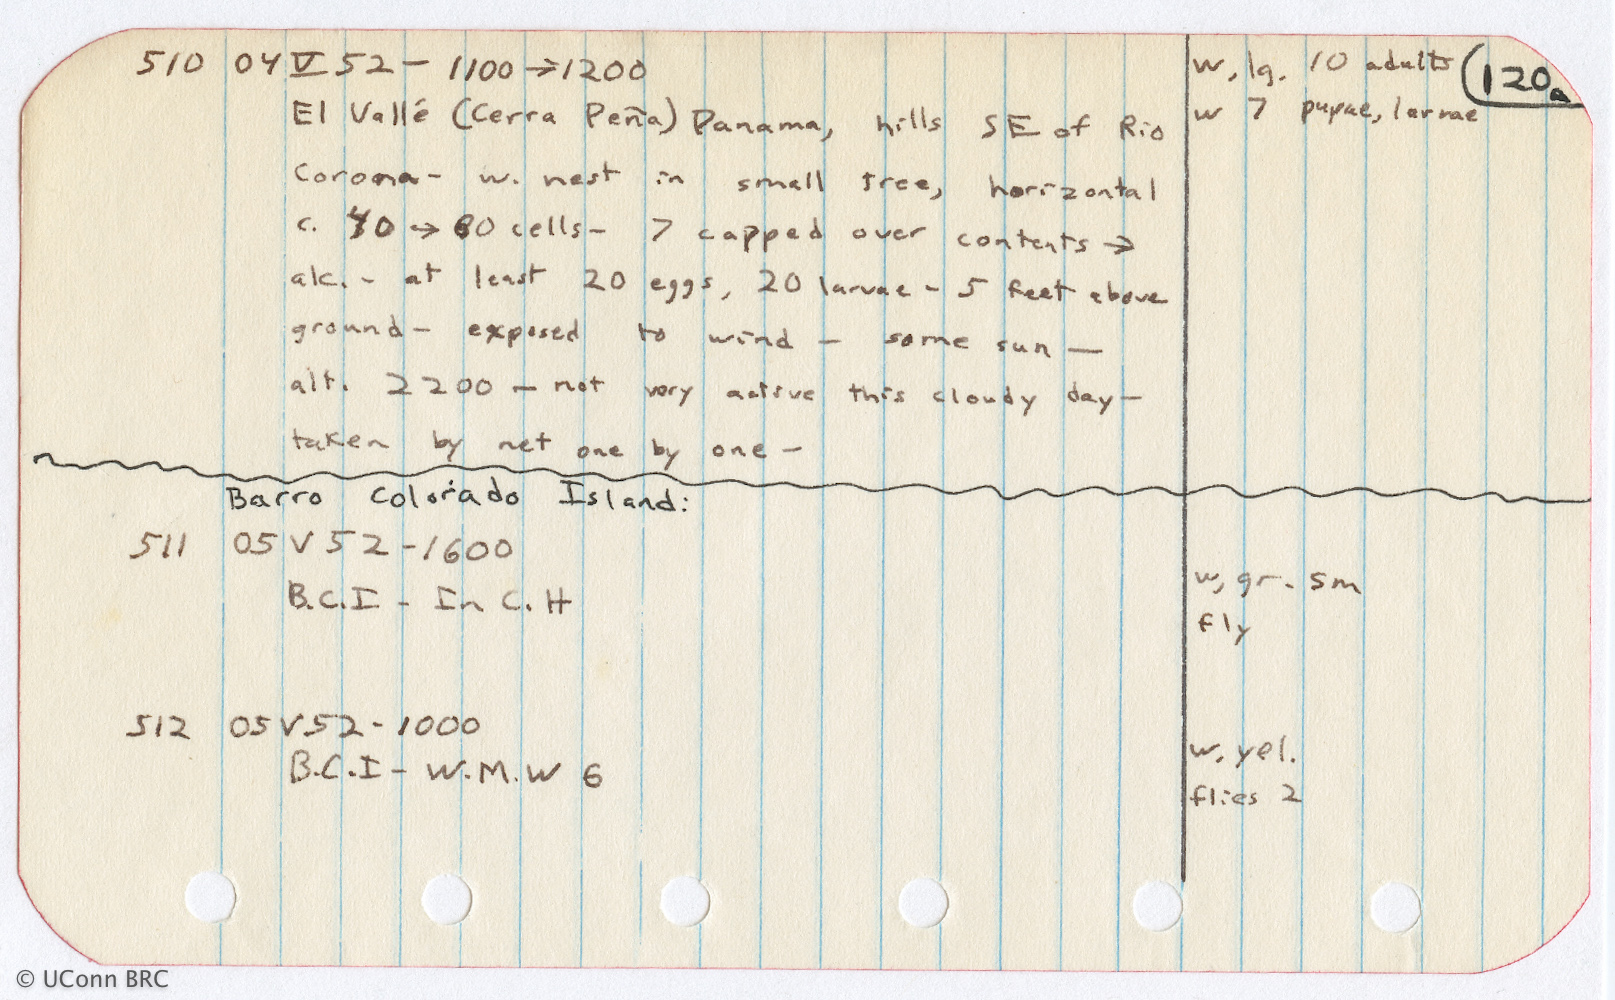 120a
510 04 V 52 - 1100 → 1200
w, lg. 10 adults
w 7 pupae, larvae
El Vallé (Cerra Peña) Panama, hills SE of Rio
Corona - w. nest in small tree, horizontal
c. 70 → 80 cells - 7 capped over contents →
alc. - at least 20 eggs, 20 larvae - 5 feet above
ground - exposed to wind - some sun —
alt. 2200 - not very active this cloudy day -
taken by net one by one -
Barro Colorado Island:
511 05 V 52 - 1600
B.C.I - In C. H
w, gr. sm
fly
512 05 V 52 - 1000
B.C.I - W.M.W 6
w, yel.
flies 2
© UConn BRC